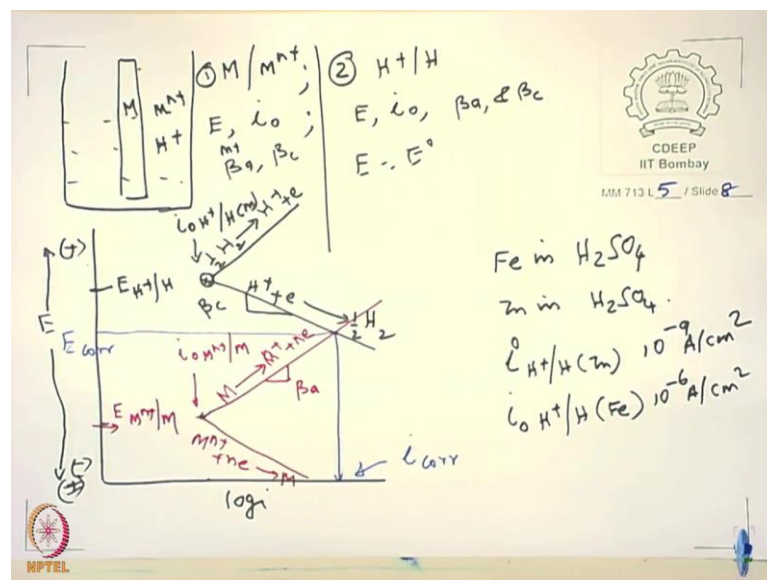 ① M / Mⁿ⁺ ;
E, i₀ ;
m+
βa, βc
② H⁺/H
E, i₀, βa, & βc
E -. E°
M
Mⁿ⁺
H⁺
CDEEP
IIT Bombay
MM 713 L 5 / Slide 8
i₀ H⁺/H(M)
½ H₂ → H⁺ + e
(+)
E H⁺/H
βc
H⁺ + e → ½ H₂
E
E corr
i₀ Mⁿ⁺/M
M → Mⁿ⁺ + ne
βa
E Mⁿ⁺/M
Mⁿ⁺ + ne → M
(-)
i corr
log i
Fe in H₂SO₄
Zn in H₂SO₄.
i° H⁺/H (Zn) 10⁻⁹ A/cm²
i₀ H⁺/H (Fe) 10⁻⁶ A/cm²
NPTEL